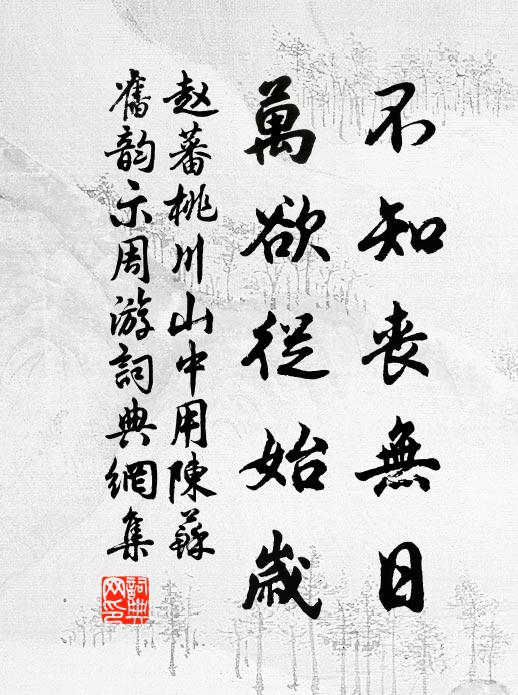 不知丧無日
萬欲從始歲
赵蕃桃川山中用陳蘇
舊韵示周游詞典網集
詞典网印